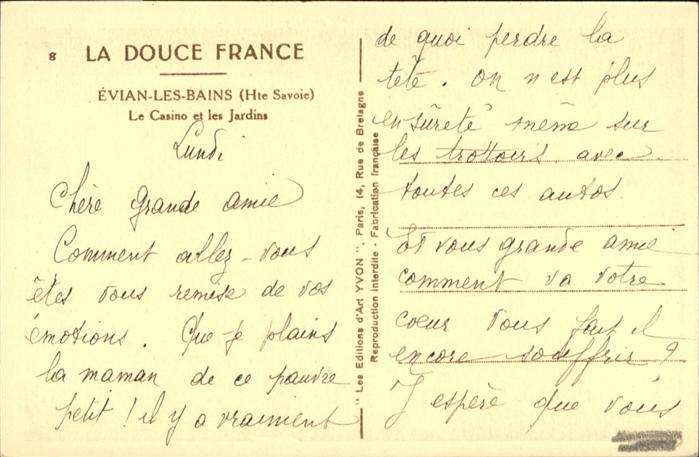 8 LA DOUCE FRANCE
ÉVIAN-LES-BAINS (Hte Savoie)
Le Casino et les Jardins
Lundi
Chère grande amie
Comment allez-vous
êtes vous remise de vos
émotions. Que je plains
la maman de ce pauvre
petit ! il y a vraiment
"Les Editions d'Art YVON", Paris, 14, Rue de Bretagne
Reproduction interdite - Fabrication française
de quoi perdre la
tête. On n'est plus
en sûreté même sur
les trottoirs avec
toutes ces autos.
Et vous grande amie
comment va votre
coeur vous fait il
encore souffrir ?
J'espère que vous